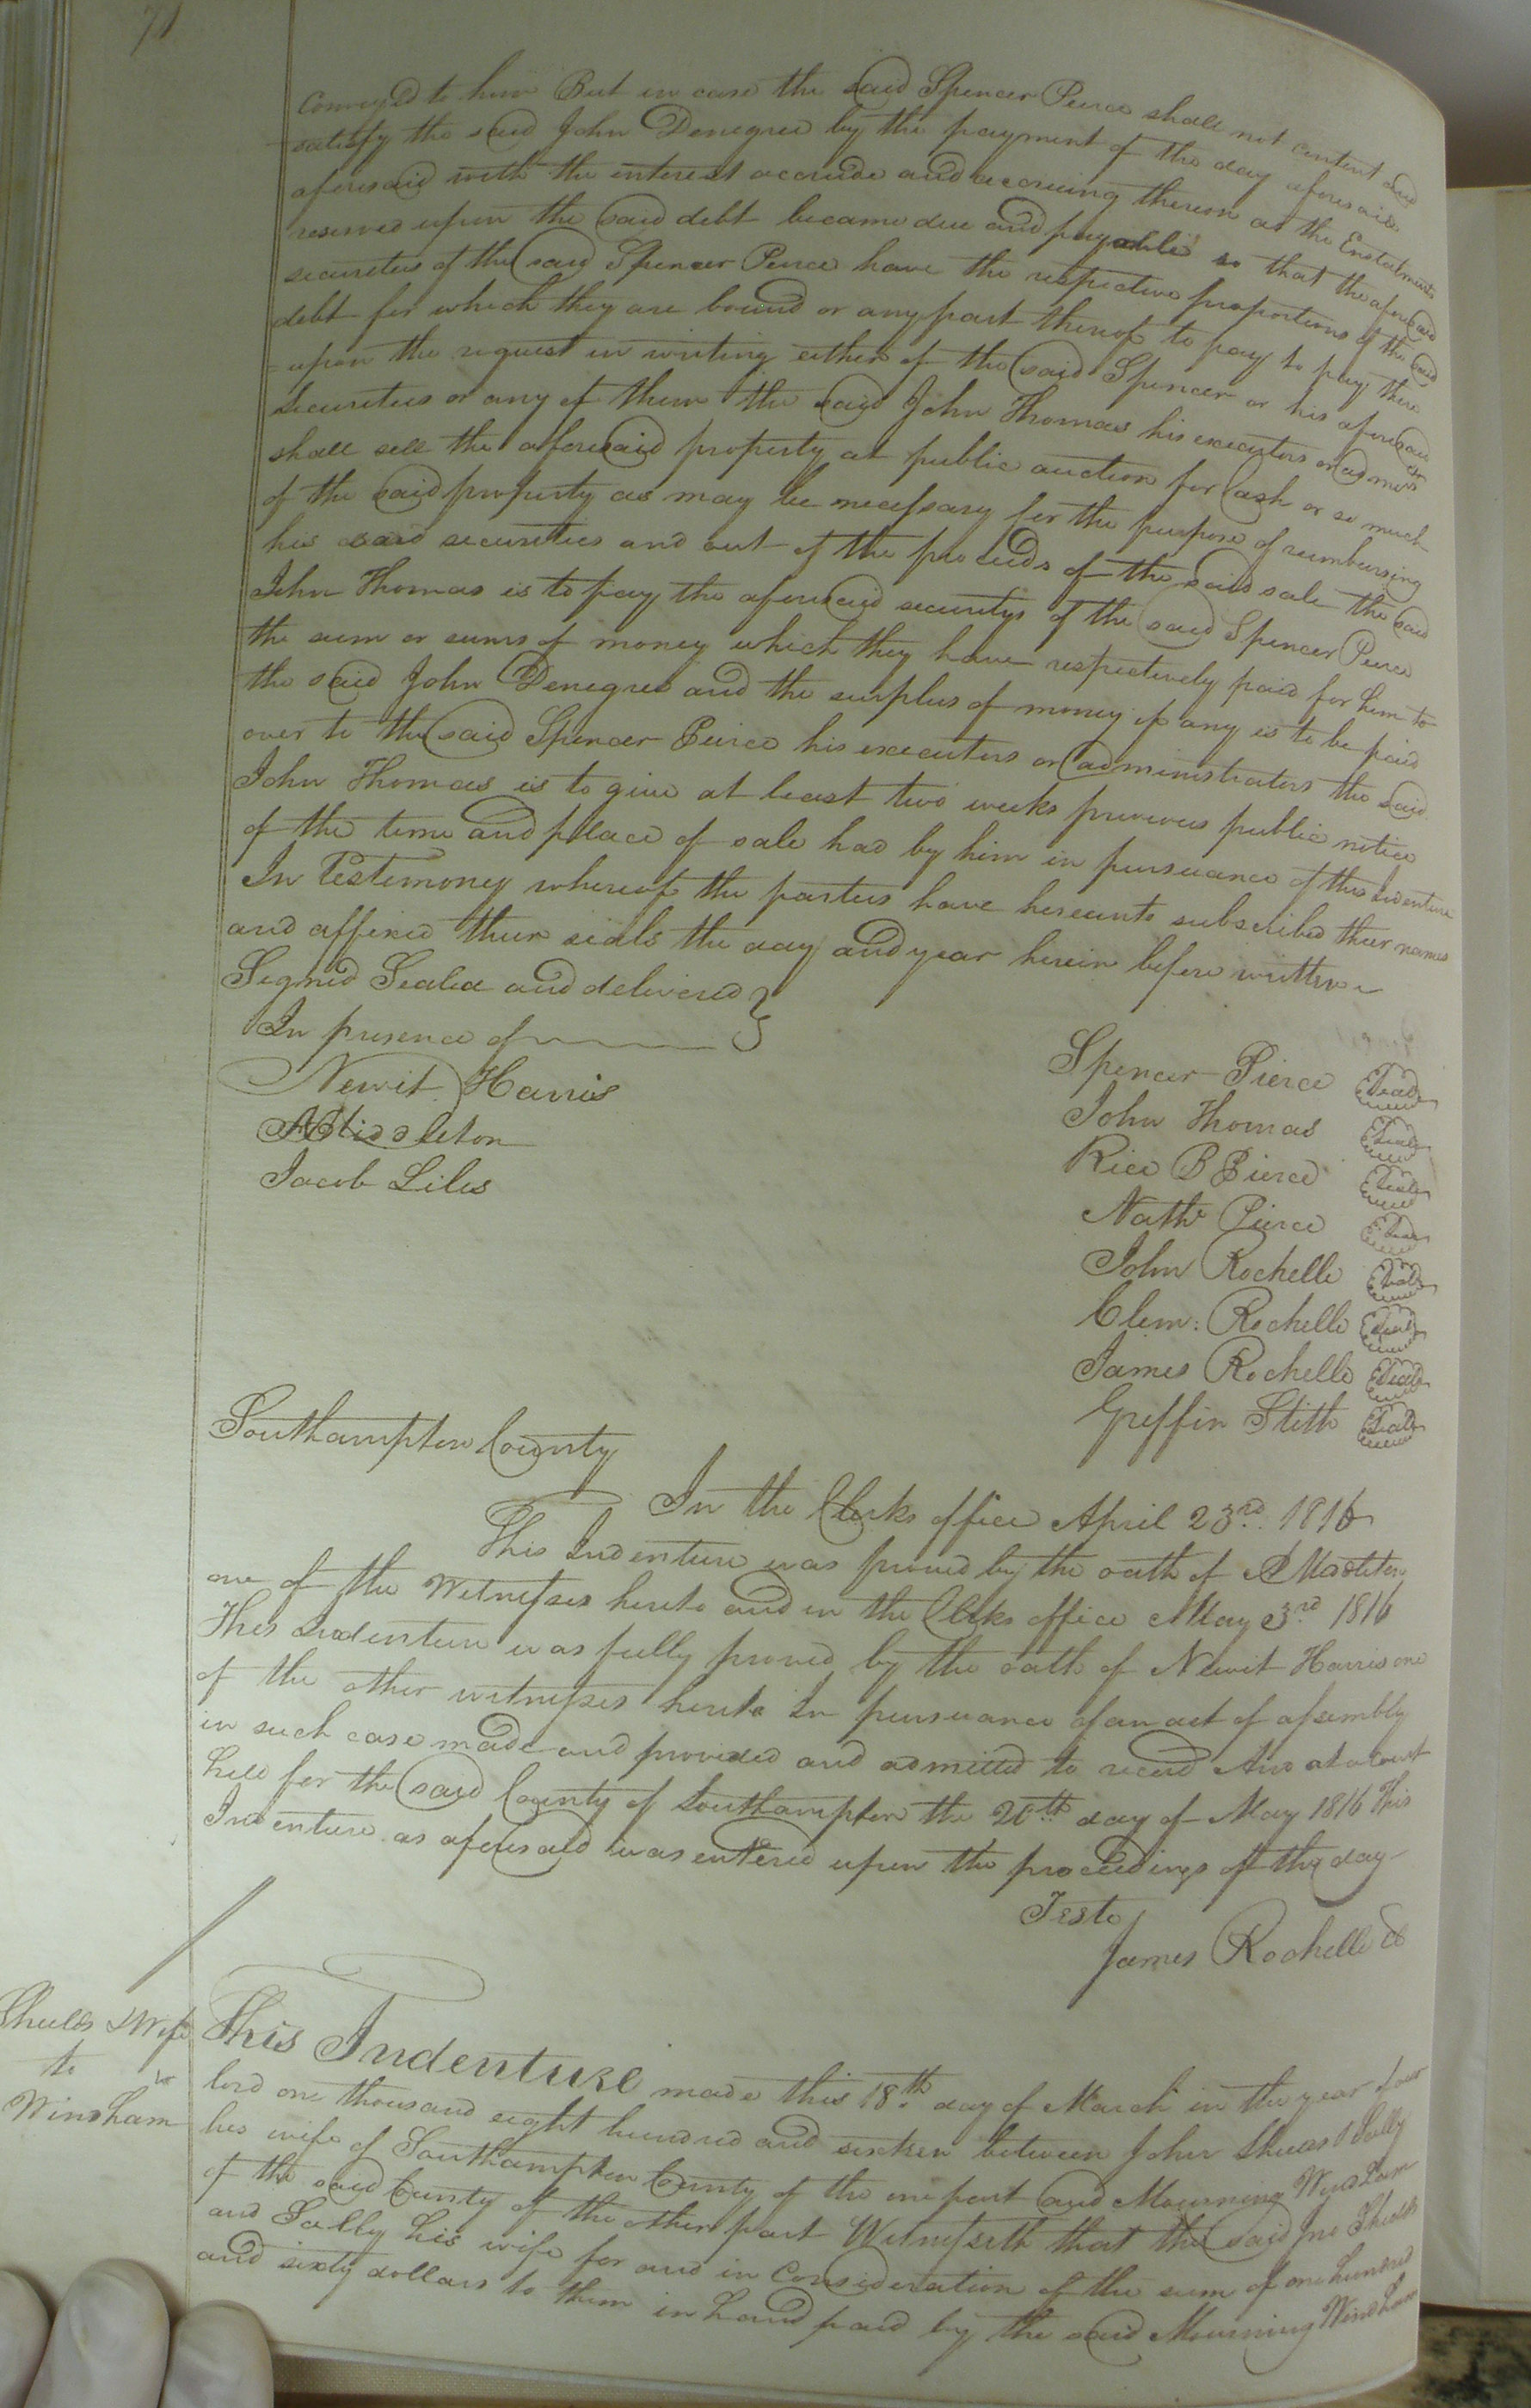 71
Conveyed to him But in case the said Spencer Pierce shall not content and
satisfy the said John Denegree by the payment of the day aforesaid
aforesaid with the interest accrude and accruing thereon as the Enstalments
reserved upon the said debt became due and payable so that the aforesaid
securities of the said Spencer Pierce have the respective proportions of the said
debt for which they are bound or any part thereof to pay to pay then
upon the request in writing either of the said Spencer or his aforesaid
securities or any of them the said John Thomas his executors or admors
shall sell the aforesaid property at public auction for Cash or so much
of the said property as may be necessary for the purpose of reimbursing
his said securities and out of the proceeds of the said sale the said
John Thomas is to pay the aforesaid securitys of the said Spencer Pierce
the sum or sums of money which they have respectively paid for him to
the said John Denegree and the surplus of money if any is to be paid
over to the said Spencer Peirce his executors or administrators the said
John Thomas is to give at least two weeks previous public notice
of the time and place of sale had by him in pursuance of this Indenture
In Testimoney whereof the parties have hereunto subscribed their names
and affixed their seals the day and year herein before written
Signed Sealed and delivered }
In presence of
Newit Harris
Middleton
Jacob Liles
Spencer Pierce Seal
John Thomas Seal
Rice B Pierce Seal
Nathl Pierce Seal
John Rochelle Seal
Clem: Rochelle Seal
James Rochelle Seal
Griffin Stith Seal
Southampton County
In the Clerks office April 23rd. 1816
This Indenture was proved by the oath of
one of the Witnesses hereto and in the Clks office May 3rd 1816
This Indenture was fully proved by the oath of Newit Harris one
of the other witnesses hereto In pursuance of an act of assembly
in such case made and provided and admitted to record And at a Court
held for the said County of Southampton the 20th day of May 1816 This
Indenture as aforesaid was entered upon the proceedings of the day
Teste
James Rochelle Cl
Shields & Wife
to
Windham
This Indenture made this 18th. day of March in the year of our
lord one thousand eight hundred and sixteen between John Shields & Sally
his wife of Southampton County of the one part and Mourning Windham
of the said County of the other part Witnesseth that the said Jno Shields
and Sally his wife for and in Consideration of the sum of one hundred
and sixty dollars to them in hand paid by the said Mourning Windham